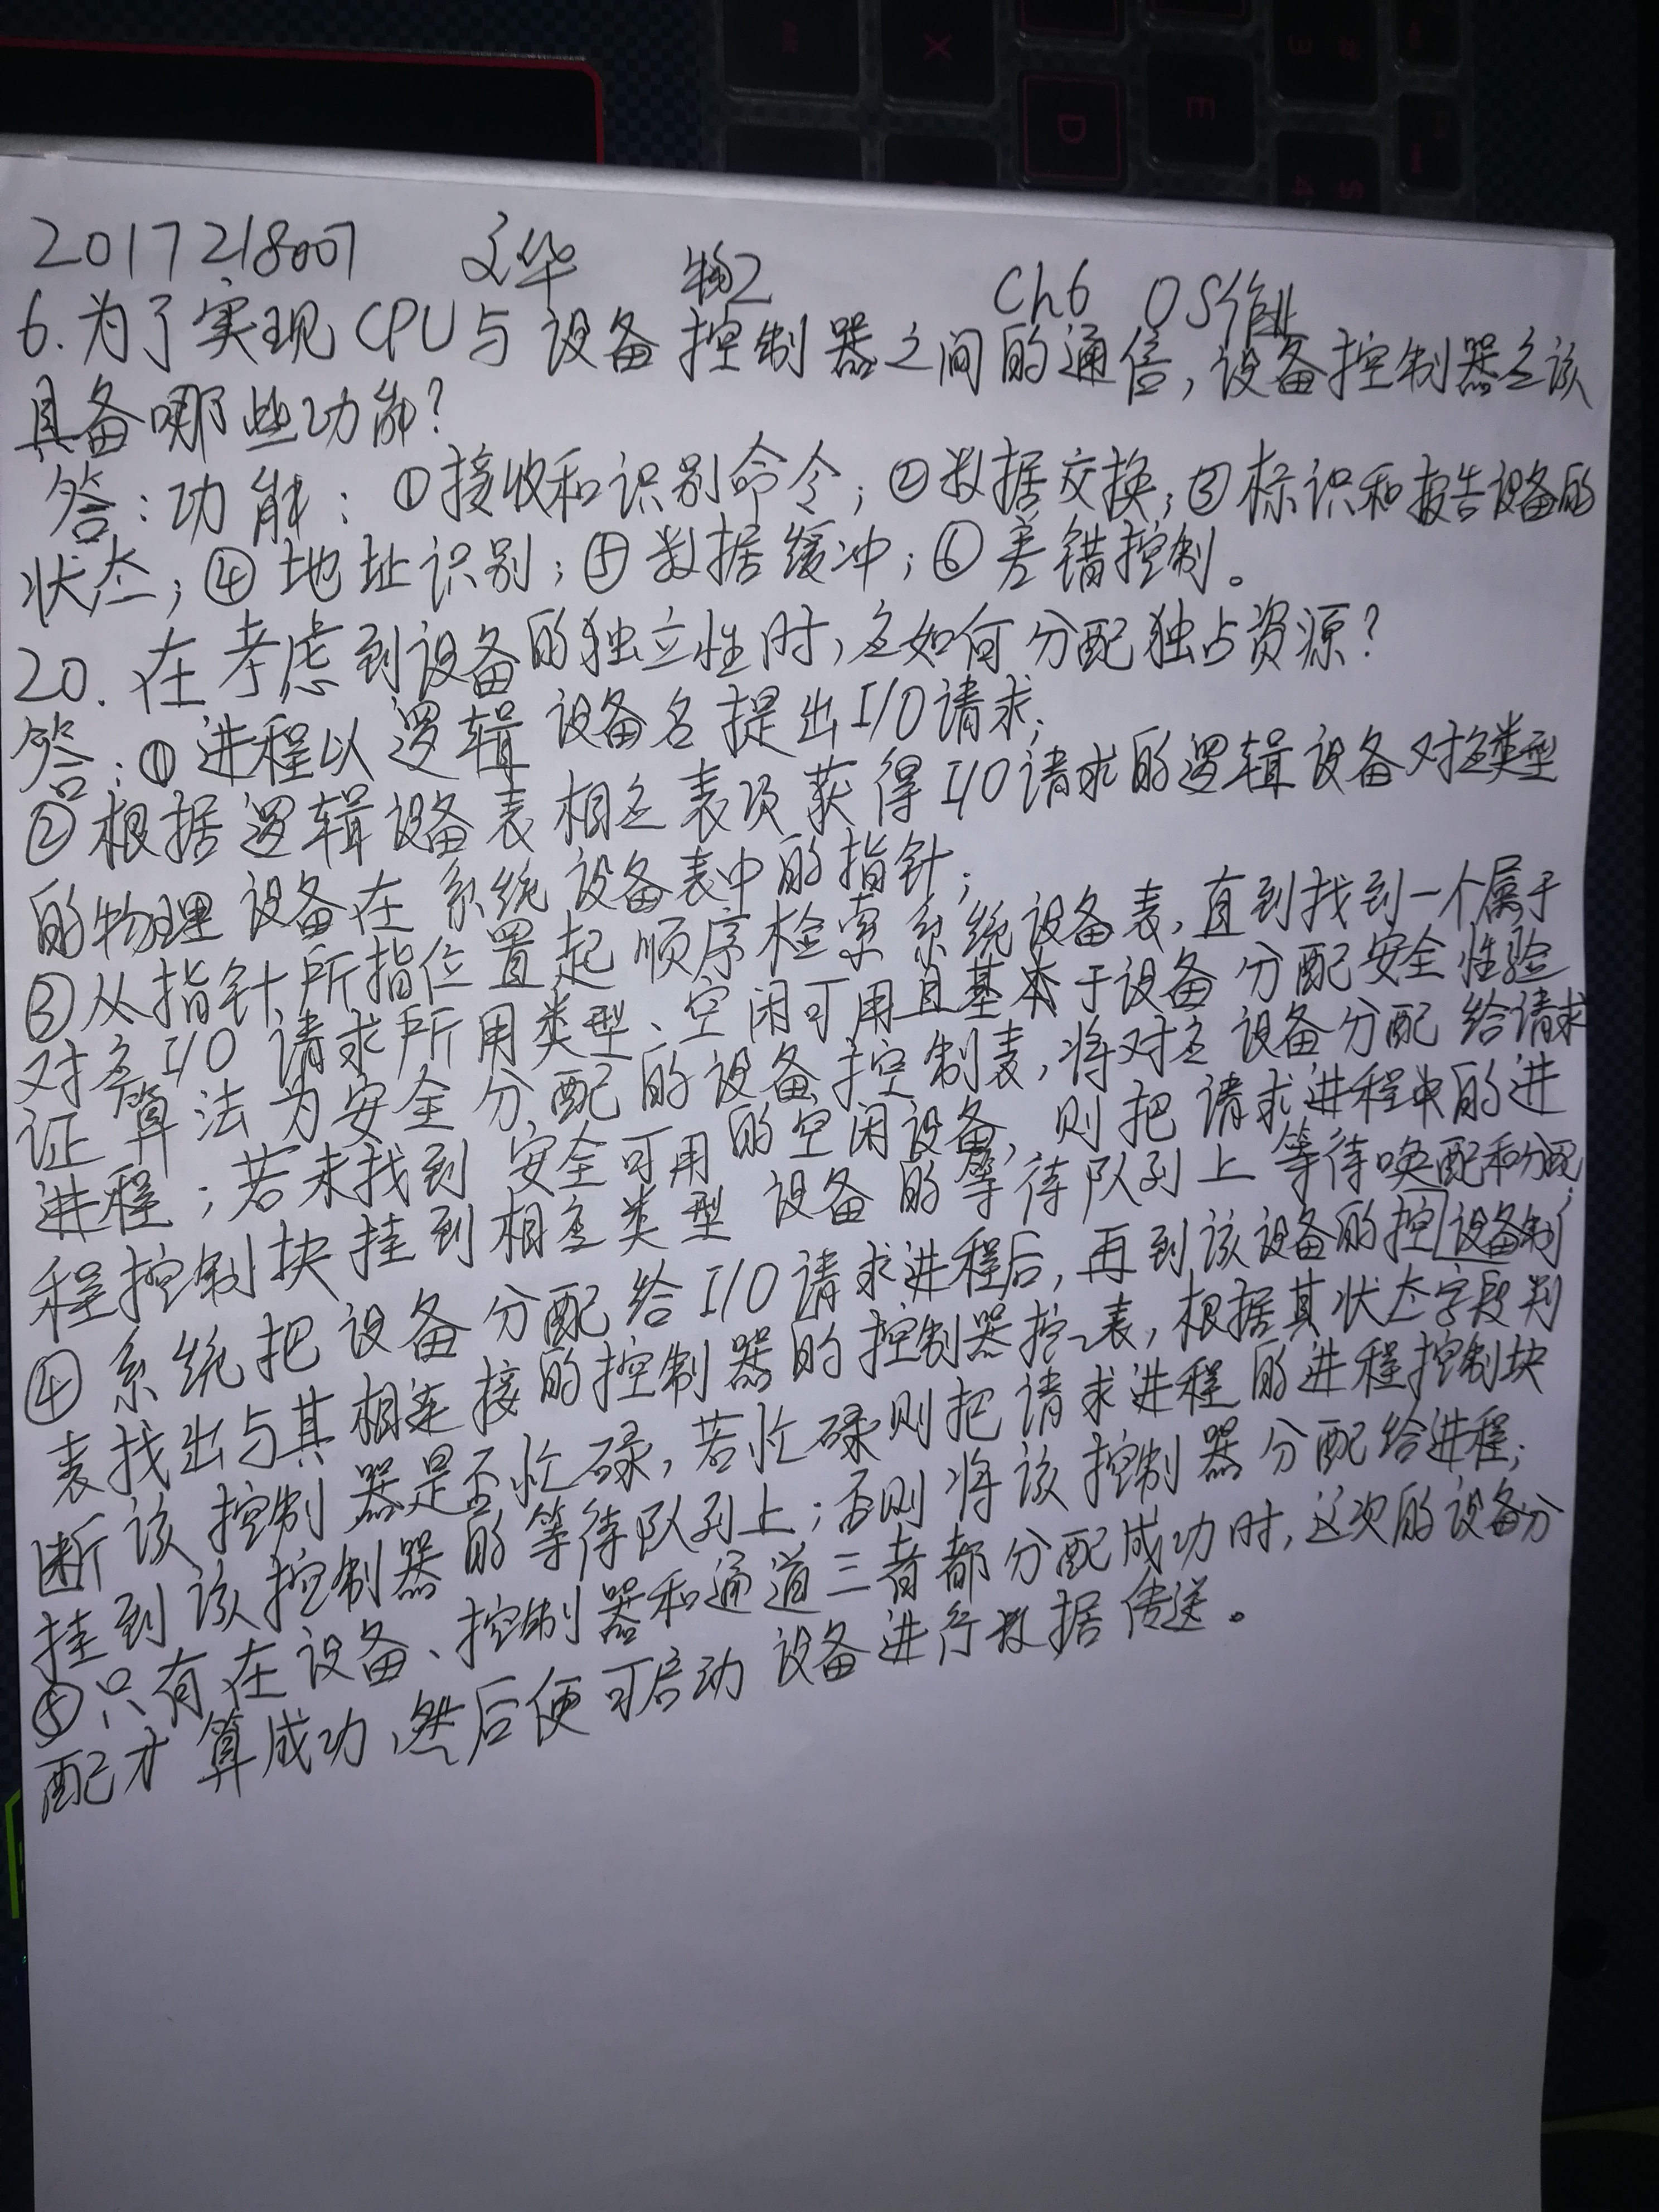 2017218007 文华 物2 Ch6 OS作业
6.为了实现CPU与设备控制器之间的通信,设备控制器应该
具备哪些功能?
答:功能:①接收和识别命令;②数据交换;③标识和报告设备的
状态;④地址识别;⑤数据缓冲;⑥差错控制。
20.在考虑到设备的独立性时,应如何分配独占资源?
答:①进程以逻辑设备名提出I/O请求;
②根据逻辑设备表相应表项获得I/O请求的逻辑设备对应类型
的物理设备在系统设备表中的指针;
③从指针所指位置起顺序检索系统设备表,直到找到一个属于
对应I/O请求所用类型、空闲可用且基本于设备分配安全性验
证算法为安全分配的设备控制表,将对应设备分配给请求
进程;若未找到安全可用的空闲设备,则把请求进程中的进
程控制块挂到相应类型设备的等待队列上等待唤配和分配;
④系统把设备分配给I/O请求进程后,再到该设备的控设备制
表找出与其相连接的控制器的控制器控表,根据其状态字段判
断该控制器是否忙碌,若忙碌则把请求进程的进程控制块
挂到该控制器的等待队列上;否则将该控制器分配给进程;
⑤只有在设备、控制器和通道三者都分配成功时,这次的设备分
配才算成功,然后便可启动设备进行数据传送。
A
X
D
E
3
#
4
$